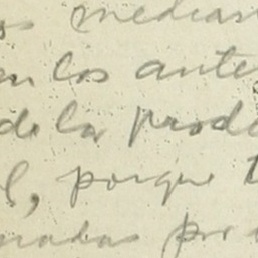 os median
en los ante
de la prod
l, porque t
radas por